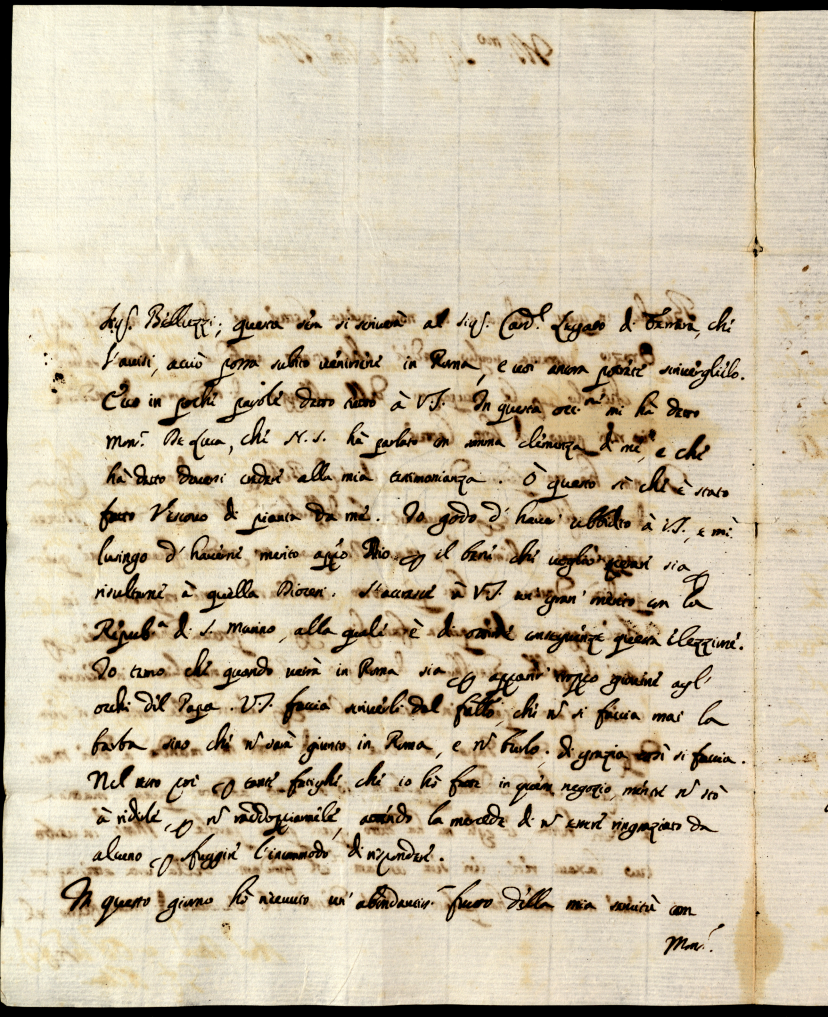 Sig.r Belluzzi; questa sera si scriverà al Sig.r Card.l Legato di Ferrara, che
l'avisi, acciò possa subito venirsene in Roma, e voi ancora potrete scriverglielo.
Ecco in poche parole detto tutto à V.S. In questa occ.ne mi hà detto
Mons.r De Luca, che N. S. hà parlato con somma clemenza di me, e che
hà detto doversi credere alla mia testimonianza. O questo sì che è stato
fatto Vescovo di pianta da me. Io godo d'haver ubbidito à V.S., e mi
lusingo d'haverne merito appo Dio, p il bene che voglio sperare sia p
risultarne à quella Diocesi. S'accresce à V.S. un gran merito con la
Repub.a di S. Marino, alla quale è di conseguenza questa elezzione.
Io temo che quando verrà in Roma sia p apparir troppo giovine agl'
occhi del Papa. V.S. faccia scriverli dal fratello, che nō si faccia mai la
barba sino che nō sarà giunto in Roma, e nō burlo, di grazia così si faccia.
Nel resto poi p tante fatighe, che io hò fatte in questo negozio, mentre nō stò
à ridirle, p nō raddoppiarmele, attendo la mercede di nō essere ringraziato da
alcuno p sfuggire l'incommodo di rispondere.
In questo giorno hò ricevuto un' abondantis.o frutto della mia servitù con
Mons.r